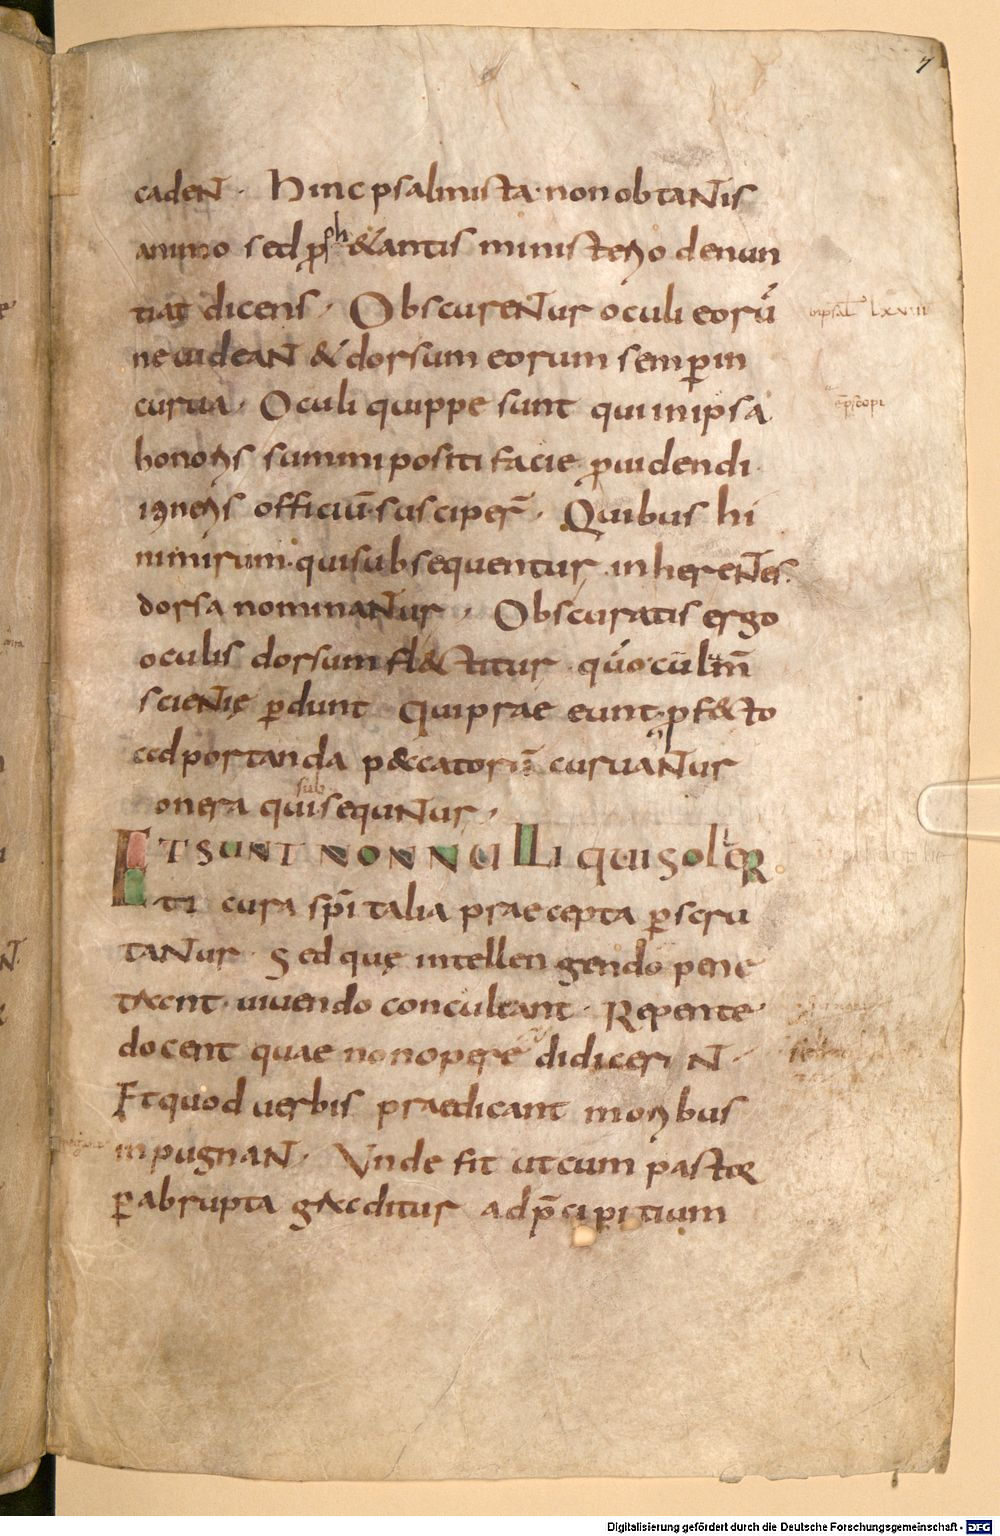 7
cadent · Hinc psalmista · non obtantis
animo sed ꝓph&antis ministerio denun
tiat dicens · Obscurentur oculi eorū
ne uideant & dorsum eorum semꝑ in
curua · Oculi quippe sunt qui in ipsa
honoris summi positi facie ꝓuidendi
itineris officiū susciper̄ · Quibus hi
nimirum · qui subsequentur inherentes ·
dorsa nominantur · Obscuratis ergo
oculis dorsum fl&titur · quo culm̄
scientię ꝑdunt qui prae eunt · ꝓf&to
ad portanda p&catorū curuantur
sub
onera qui sequntur ·
ET SUNT NONNULLI qui soler
ti cura sp̄italia praecepta ꝑscru
tantur · Sed quę intellengendo pene
trant · uiuendo conculcant · Repente
docent quae non opere didicerint ·
Et quod uerbis praedicant moribus
inpugnant · Unde fit ut cum pastor
ꝑ abrupta graditur ad p̄cipitium
in psal lxviii
ep̄scopi
Digitalisierung gefördert durch die Deutsche Forschungsgemeinschaft - DFG